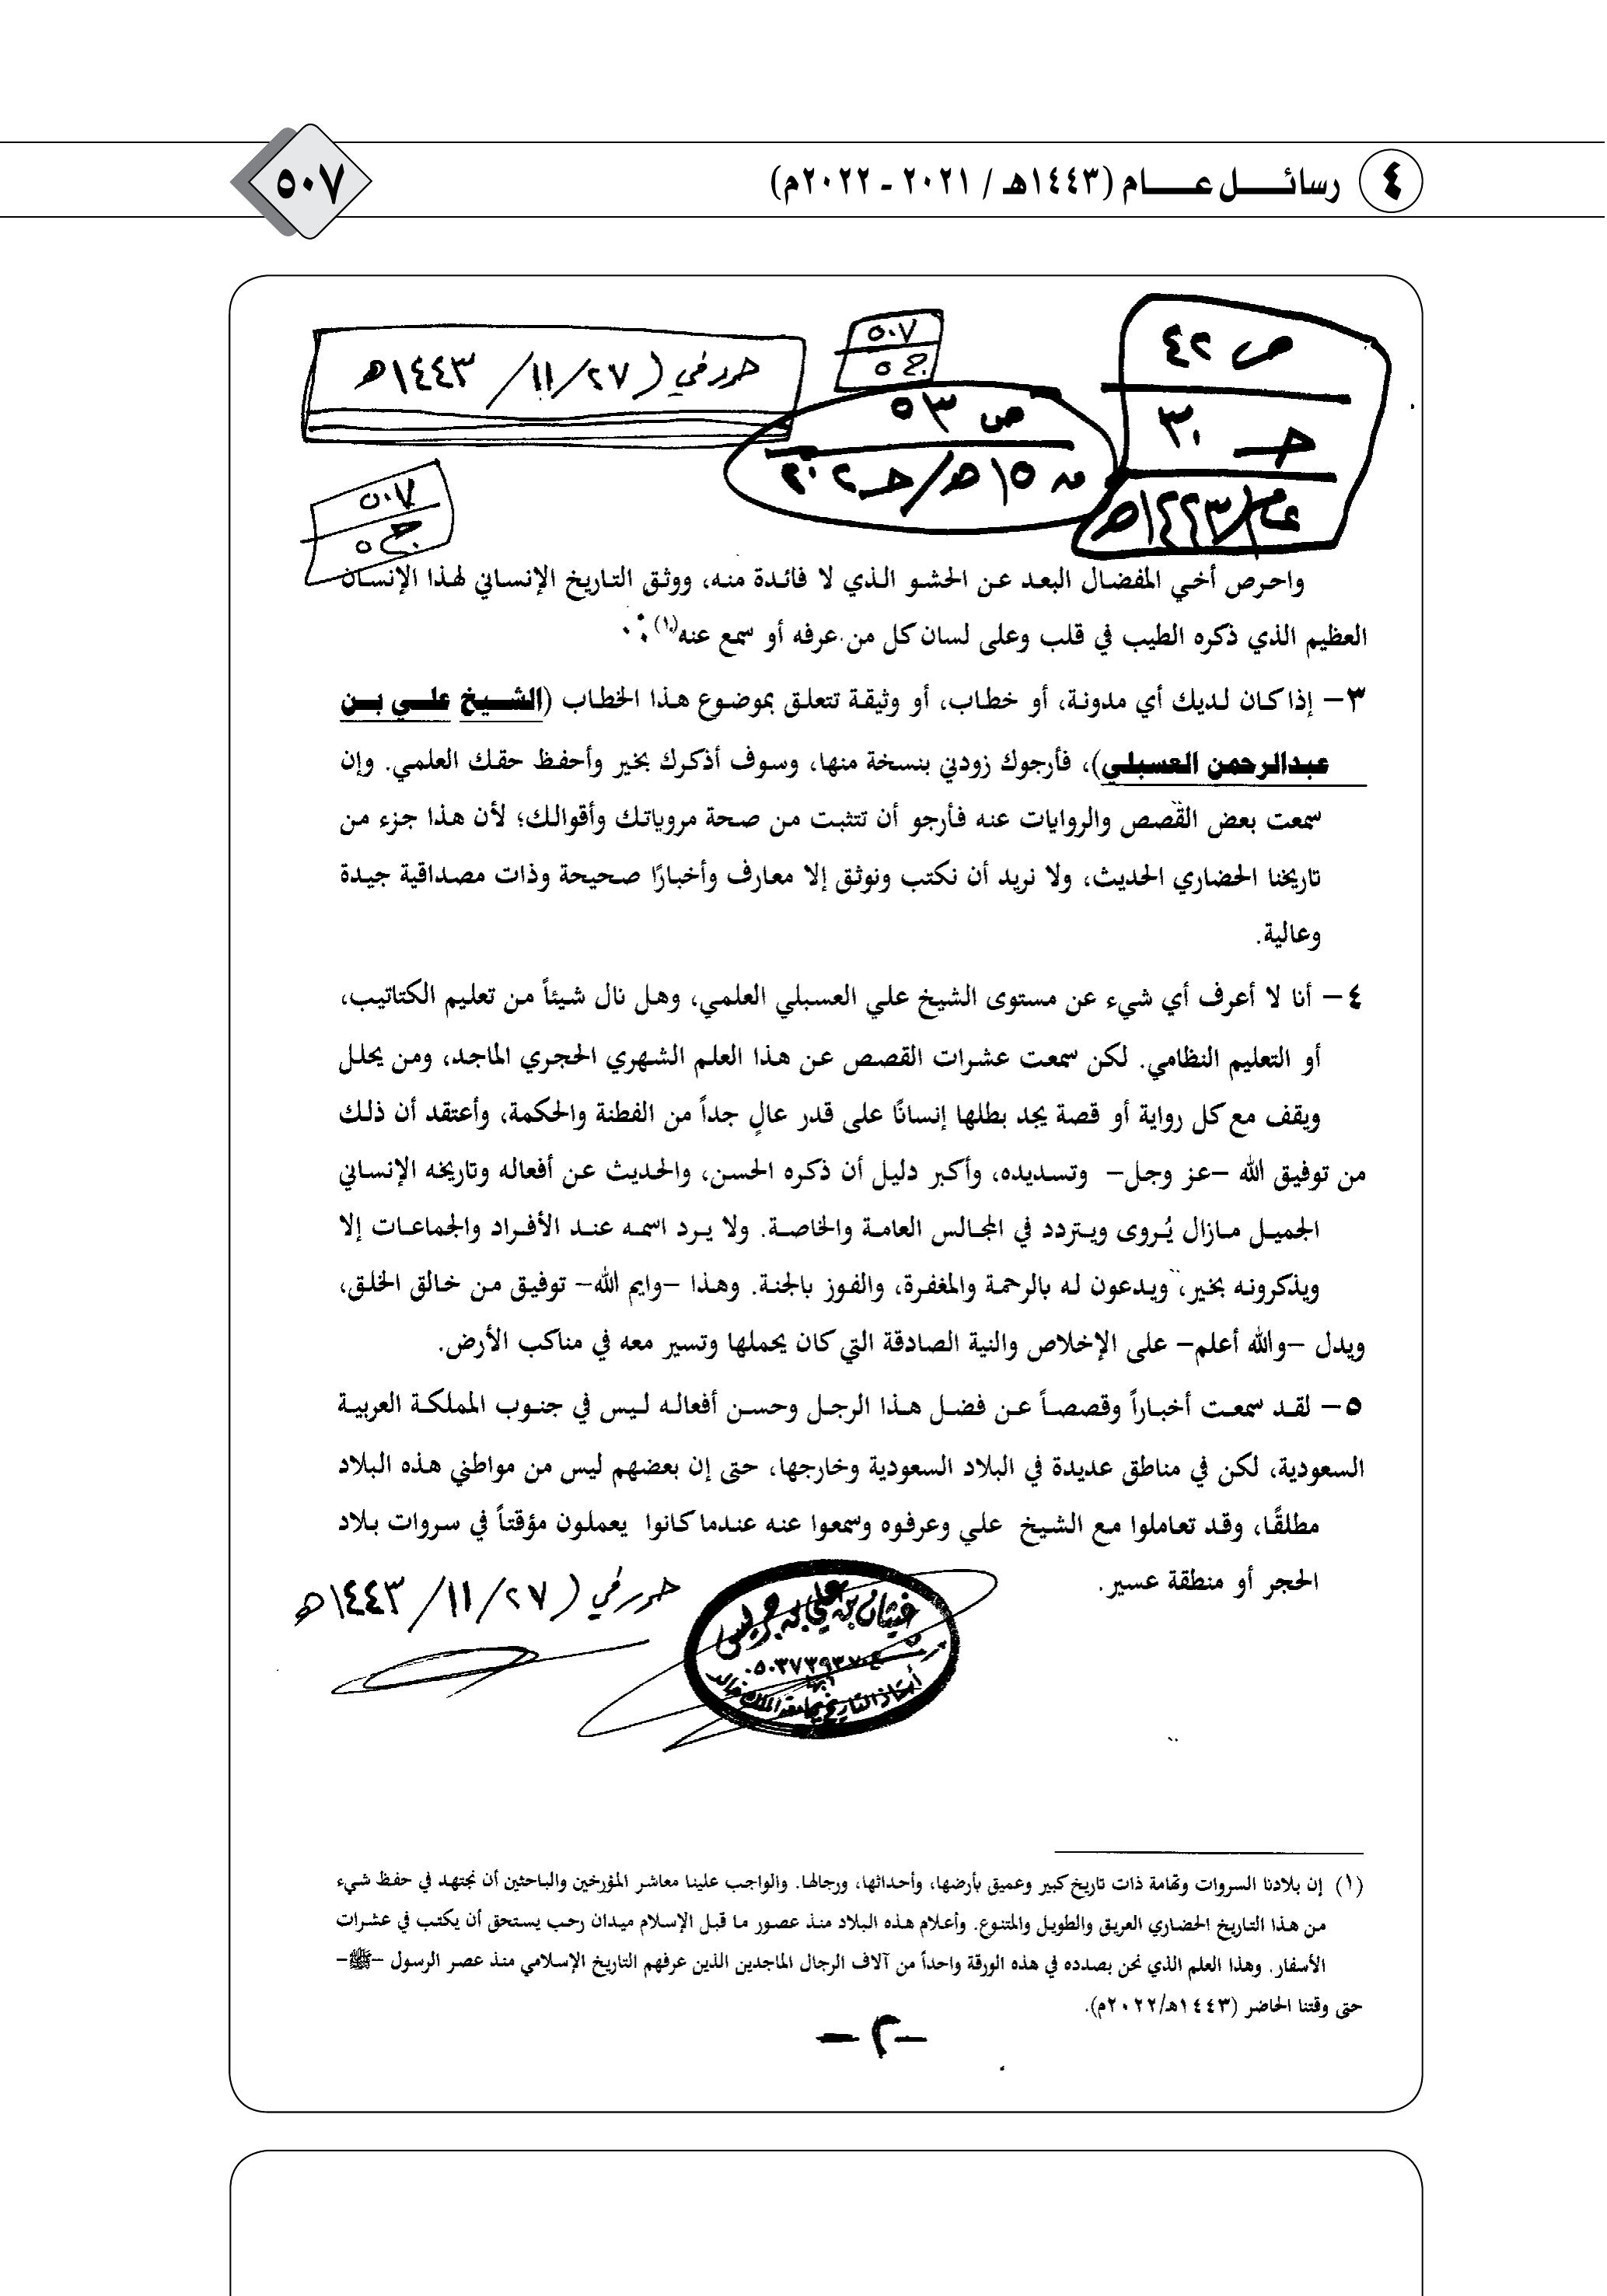 ٤ رسائل عام (١٤٤٣هـ / ٢٠٢١ - ٢٠٢٢م)
٥٠٧
ص ٤٢
جـ ٣٠
عام ١٤٤٣هـ
٥٠٧
ج ٥
ص ٥٣
حرر في (٢٧/ ١١/ ١٤٤٣هـ
٥٠٧
ج ٥
واحرص أخي المفضال البعد عن الحشو الذي لا فائدة منه، ووثق التاريخ الإنساني لهذا الإنسان
العظيم الذي ذكره الطيب في قلب وعلى لسان كل من عرفه أو سمع عنه(١).
٣- إذا كان لديك أي مدونة، أو خطاب، أو وثيقة تتعلق بموضوع هذا الخطاب (الشيخ علي بن
عبدالرحمن العسبلي)، فأرجوك زودني بنسخة منها، وسوف أذكرك بخير وأحفظ حقك العلمي. وإن
سمعت بعض القصص والروايات عنه فأرجو أن تتثبت من صحة مروياتك وأقوالك؛ لأن هذا جزء من
تاريخنا الحضاري الحديث، ولا نريد أن نكتب ونوثق إلا معارف وأخبارًا صحيحة وذات مصداقية جيدة
وعالية.
٤- أنا لا أعرف أي شيء عن مستوى الشيخ علي العسبلي العلمي، وهل نال شيئاً من تعليم الكتاتيب،
أو التعليم النظامي. لكن سمعت عشرات القصص عن هذا العلم الشهري الحجري الماجد، ومن يحلل
ويقف مع كل رواية أو قصة يجد بطلها إنسانًا على قدر عالٍ جداً من الفطنة والحكمة، وأعتقد أن ذلك
من توفيق الله -عز وجل- وتسديده، وأكبر دليل أن ذكره الحسن، والحديث عن أفعاله وتاريخه الإنساني
الجميل مازال يُروى ويتردد في المجالس العامة والخاصة. ولا يرد اسمه عند الأفراد والجماعات إلا
ويذكرونه بخير، ويدعون له بالرحمة والمغفرة، والفوز بالجنة. وهذا -وايم الله- توفيق من خالق الخلق،
ويدل -والله أعلم- على الإخلاص والنية الصادقة التي كان يحملها وتسير معه في مناكب الأرض.
٥- لقد سمعت أخباراً وقصصاً عن فضل هذا الرجل وحسن أفعاله ليس في جنوب المملكة العربية
السعودية، لكن في مناطق عديدة في البلاد السعودية وخارجها، حتى إن بعضهم ليس من مواطني هذه البلاد
مطلقًا، وقد تعاملوا مع الشيخ علي وعرفوه وسمعوا عنه عندما كانوا يعملون مؤقتاً في سروات بلاد
الحجر أو منطقة عسير.
حرر في (٢٧/ ١١/ ١٤٤٣هـ
غيثان بن علي بن جريس
أستاذ التاريخ بجامعة الملك خالد
(١) إن بلادنا السروات وتهامة ذات تاريخ كبير وعميق بأرضها، وأحداثها، ورجالها. والواجب علينا معاشر المؤرخين والباحثين أن نجتهد في حفظ شيء
من هذا التاريخ الحضاري العريق والطويل والمتنوع. وأعلام هذه البلاد منذ عصور ما قبل الإسلام ميدان رحب يستحق أن يكتب في عشرات
الأسفار. وهذا العلم الذي نحن بصدده في هذه الورقة واحداً من آلاف الرجال الماجدين الذين عرفهم التاريخ الإسلامي منذ عصر الرسول -ﷺ-
حتى وقتنا الحاضر (١٤٤٣هـ/٢٠٢٢م).
-٢-